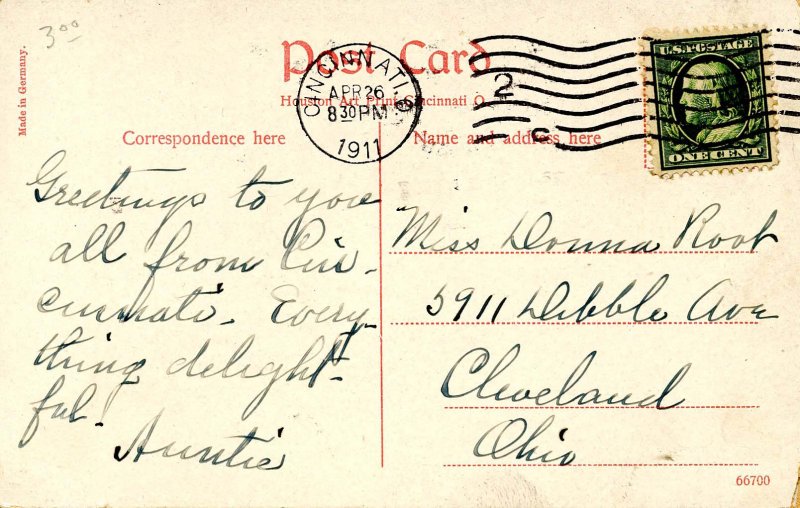 3 00
Made in Germany.
Post Card
Houston Art Print Cincinnati O.
CINCINNATI, O.
APR 26
8 30 PM
1911
2
C
U.S. POSTAGE
ONE CENT
Correspondence here
Name and address here
Greetings to you
all from Cin-
cinnati. Every
thing delight-
ful.
Auntie
Miss Donna Root
5911 Dibble Ave
Cleveland
Ohio
66700